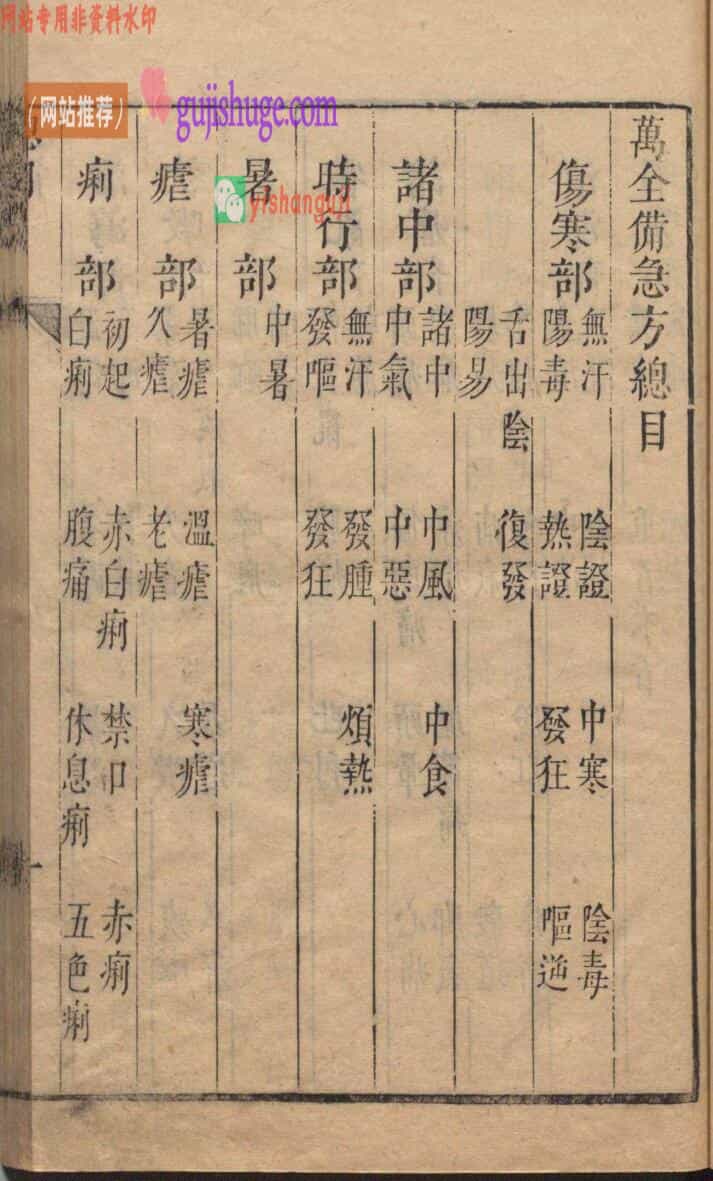 网站专用非资料水印
(网站推荐)
gujishuge.com
yishanguji
萬全備急方總目
傷寒部
無汗 陰證 中寒 陰毒
陽毒 熱證 發狂 嘔逆
舌出 陰 復發
陽易
諸中部
諸中 中風 中食
中氣 中惡
時行部
無汗 發腫 煩熱
發嘔 發狂
暑部
中暑
瘧部
暑瘧 溫瘧 寒瘧
久瘧 老瘧
痢部
初起 赤白痢 禁口 赤痢
白痢 腹痛 休息痢 五色痢
一